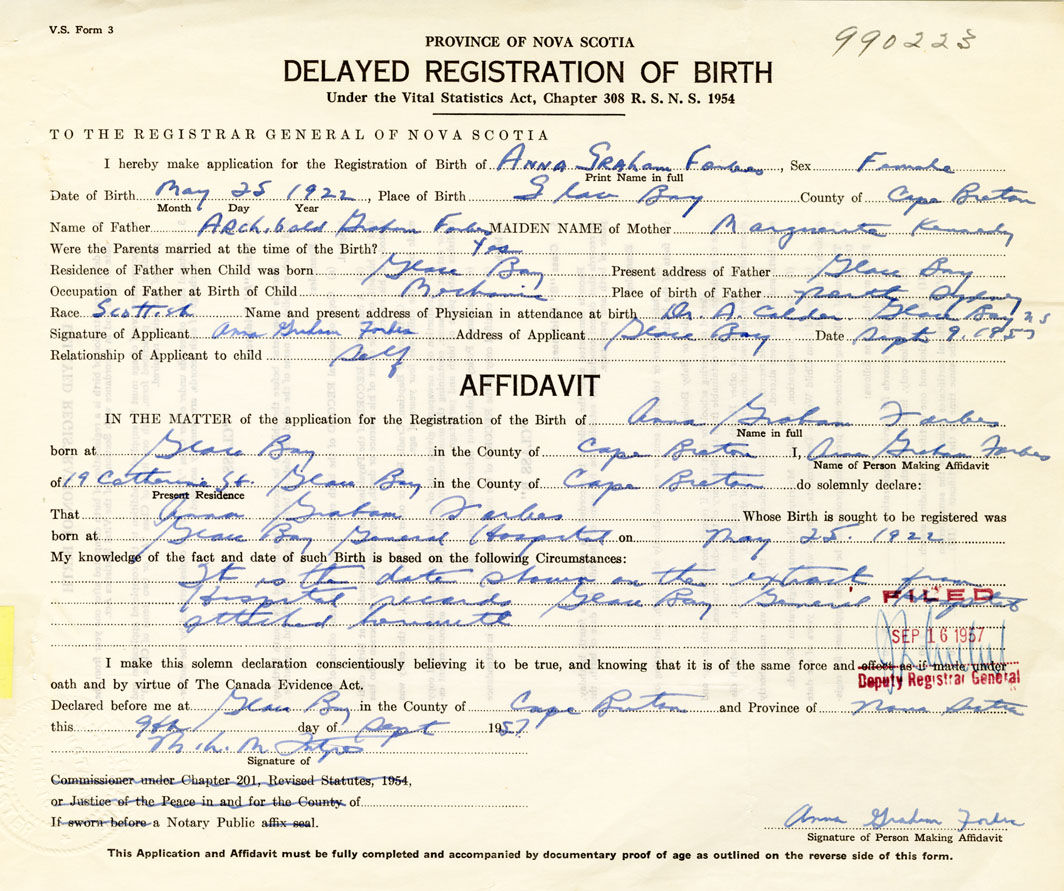 V.S. Form 3
990223
PROVINCE OF NOVA SCOTIA
DELAYED REGISTRATION OF BIRTH
Under the Vital Statistics Act, Chapter 308 R. S. N. S. 1954
TO THE REGISTRAR GENERAL OF NOVA SCOTIA
I hereby make application for the Registration of Birth of ANNA GRAHAM Forbes, Sex Female
Print Name in full
Date of Birth May 25 1922, Place of Birth Glace Bay County of Cape Breton
Month Day Year
Name of Father ARCHibald Graham Forbes MAIDEN NAME of Mother Marguerite Kennedy
Were the Parents married at the time of the Birth? Yes
Residence of Father when Child was born Glace Bay Present address of Father Glace Bay
Occupation of Father at Birth of Child Mechanic Place of birth of Father North Sydney
Race Scottish Name and present address of Physician in attendance at birth Dr. A. Calder Glace Bay N S
Signature of Applicant Anna Graham Forbes Address of Applicant Glace Bay Date Sept 9. 1957
Relationship of Applicant to child Self
AFFIDAVIT
IN THE MATTER of the application for the Registration of the Birth of Anna Graham Forbes
Name in full
born at Glace Bay in the County of Cape Breton I, Anna Graham Forbes
Name of Person Making Affidavit
of 19 Catherine St. Glace Bay in the County of Cape Breton do solemnly declare:
Present Residence
That Anna Graham Forbes Whose Birth is sought to be registered was
born at Glace Bay General Hospital on May 25. 1922
My knowledge of the fact and date of such Birth is based on the following Circumstances:
It is the date shown on the extract from
Hospital records Glace Bay General Hospital
attached herewith
FILED
SEP 16 1957
Deputy Registrar General
I make this solemn declaration conscientiously believing it to be true, and knowing that it is of the same force and effect as if made under
oath and by virtue of The Canada Evidence Act.
Declared before me at Glace Bay in the County of Cape Breton and Province of Nova Scotia
this 9th day of Sept 1957
Signature of
Commissioner under Chapter 201, Revised Statutes, 1954,
or Justice of the Peace in and for the County of
If sworn before a Notary Public affix seal.
Anna Graham Forbes
Signature of Person Making Affidavit
This Application and Affidavit must be fully completed and accompanied by documentary proof of age as outlined on the reverse side of this form.